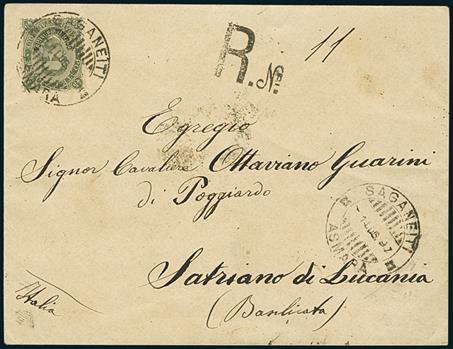 SAGANEITI
ASMARA
R. No
11
Egregio
Signor Cavaliere Ottaviano Guarini
di Poggiardo
SAGANEITI
ASMARA
Satriano di Lucania
(Basilicata)
Italia